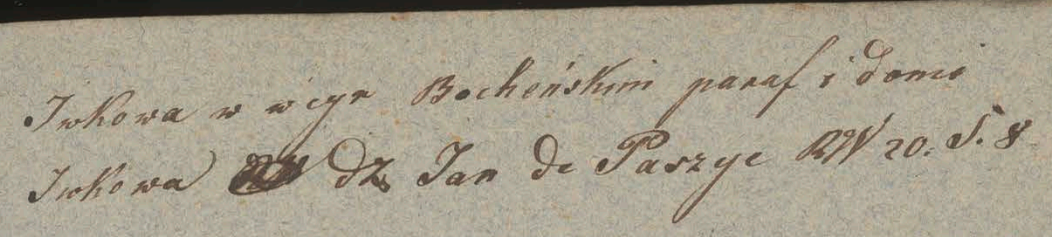 Iwkowa w wcyr Bocheńskim paraf i domi
Iwkowa dz Jan de Paszyc RW 20. S. 8